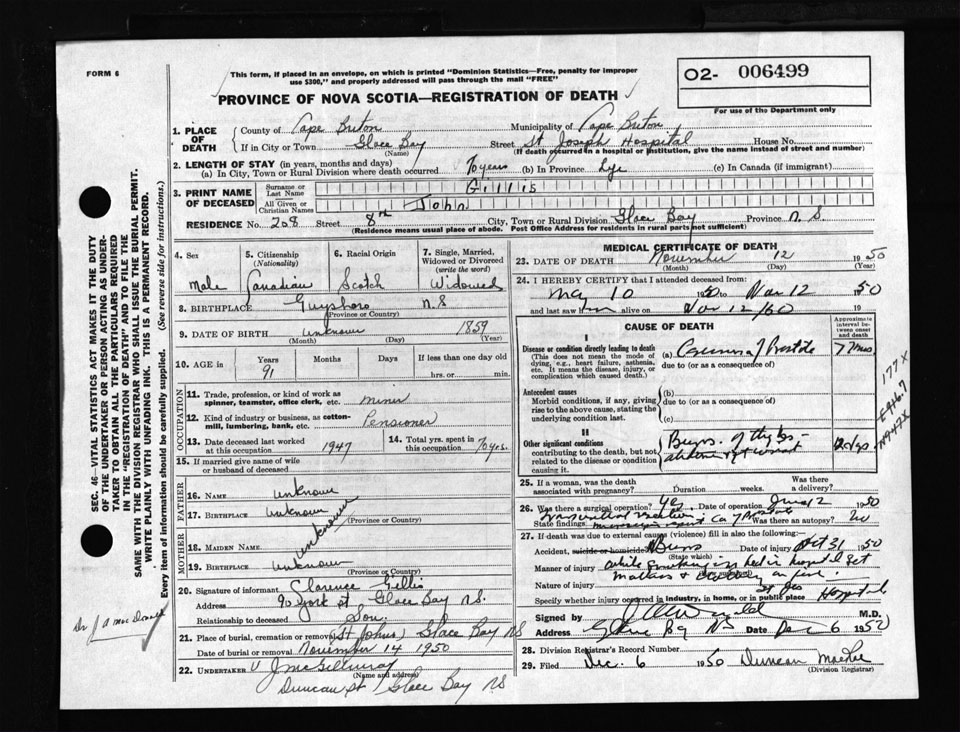 FORM 6
This form, if placed in an envelope, on which is printed "Dominion Statistics—Free, penalty for improper
use $300," and properly addressed will pass through the mail "FREE"
PROVINCE OF NOVA SCOTIA—REGISTRATION OF DEATH
O2- 006499
For use of the Department only
1. PLACE OF DEATH
County of Cape Breton Municipality of Cape Breton
If in City or Town Glace Bay Street St Joseph Hospital House No.
(Name) (If death occurred in a hospital or institution, give the name instead of street and number)
2. LENGTH OF STAY (in years, months and days)
(a) In City, Town or Rural Division where death occurred 70 years (b) In Province Life (c) In Canada (if immigrant)
3. PRINT NAME OF DECEASED
Surname or Last Name Gillis
All Given or Christian Names John
RESIDENCE No. 208 Street 8th City, Town or Rural Division Glace Bay Province N.S.
(Residence means usual place of abode. Post Office Address for residents in rural parts not sufficient)
4. Sex
Male
5. Citizenship (Nationality)
Canadian
6. Racial Origin
Scotch
7. Single, Married, Widowed or Divorced (write the word)
Widowed
8. BIRTHPLACE Guysboro N.S
(Province or Country)
9. DATE OF BIRTH unknown 1859
(Month) (Day) (Year)
10. AGE in Years Months Days If less than one day
91 hrs. or min.
OCCUPATION
11. Trade, profession, or kind of work as
spinner, teamster, office clerk, etc. miner
12. Kind of industry or business, as cotton-
mill, lumbering, bank, etc. Pensioner
13. Date deceased last worked
at this occupation 1947
14. Total yrs. spent in
this occupation 70 yrs.
15. If married give name of wife
or husband of deceased
FATHER
16. Name unknown
17. Birthplace unknown
(Province or Country)
MOTHER
18. Maiden Name unknown
19. Birthplace unknown
(Province or Country)
20. Signature of informant Clarence Gillis
Address 90 York St Glace Bay N.S.
Relationship to deceased Son
21. Place of burial, cremation or removal St Johns, Glace Bay NS
Date of burial or removal November 14 1950
22. UNDERTAKER V J McGillivray
(Name and address)
Duncan St Glace Bay NS
MEDICAL CERTIFICATE OF DEATH
23. DATE OF DEATH November 12 1950
(Month) (Day) (Year)
24. I HEREBY CERTIFY that I attended deceased from:
May 10 1950 to Nov 12 1950
and last saw him alive on Nov 12/50 19
CAUSE OF DEATH
Approximate interval between onset and death
I
Disease or condition directly leading to death
(This does not mean the mode of
dying, e.g., heart failure, asthenia,
etc. It means the disease, injury, or
complication which caused death.)
(a) Carcinoma of Prostate 7 mos
due to (or as a consequence of)
Antecedent causes
Morbid conditions, if any, giving
rise to the above cause, stating the
underlying condition last.
(b)
due to (or as a consequence of)
(c)
II
Other significant conditions
contributing to the death, but not
related to the disease or condition
causing it.
Burns of thighs -
abdomen & rt wrist
12 days
177 X
E916.7
N947X
25. If a woman, was the death
associated with pregnancy? Duration weeks. Was there
a delivery?
26. Was there a surgical operation? yes Date of operation June 2 1950
State findings Ca of Prostate Was there an autopsy? no
27. If death was due to external causes (violence) fill in also the following:—
Accident, suicide or homicide? Burns Date of injury Oct 31 1950
(State which)
Manner of injury while smoking in bed in hospital set
mattress & on fire.
Nature of injury
Specify whether injury occurred in industry, in home, or in public place St Jos Hospital
Signed by J A McDonald M.D.
Address Glace Bay NS Date Dec 6 1950
28. Division Registrar's Record Number
29. Filed Dec. 6 1950 Duncan
(Division Registrar)
SEC. 46—VITAL STATISTICS ACT MAKES IT THE DUTY
OF THE UNDERTAKER OR PERSON ACTING AS UNDER-
TAKER TO OBTAIN ALL THE PARTICULARS REQUIRED
IN THE "REGISTRATION OF DEATH" AND TO FILE THE
SAME WITH THE DIVISION REGISTRAR WHO SHALL ISSUE THE BURIAL PERMIT.
WRITE PLAINLY WITH UNFADING INK. THIS IS A PERMANENT RECORD.
Every item of information should be carefully supplied. (See reverse side for instructions.)
Dr J A MacDonald